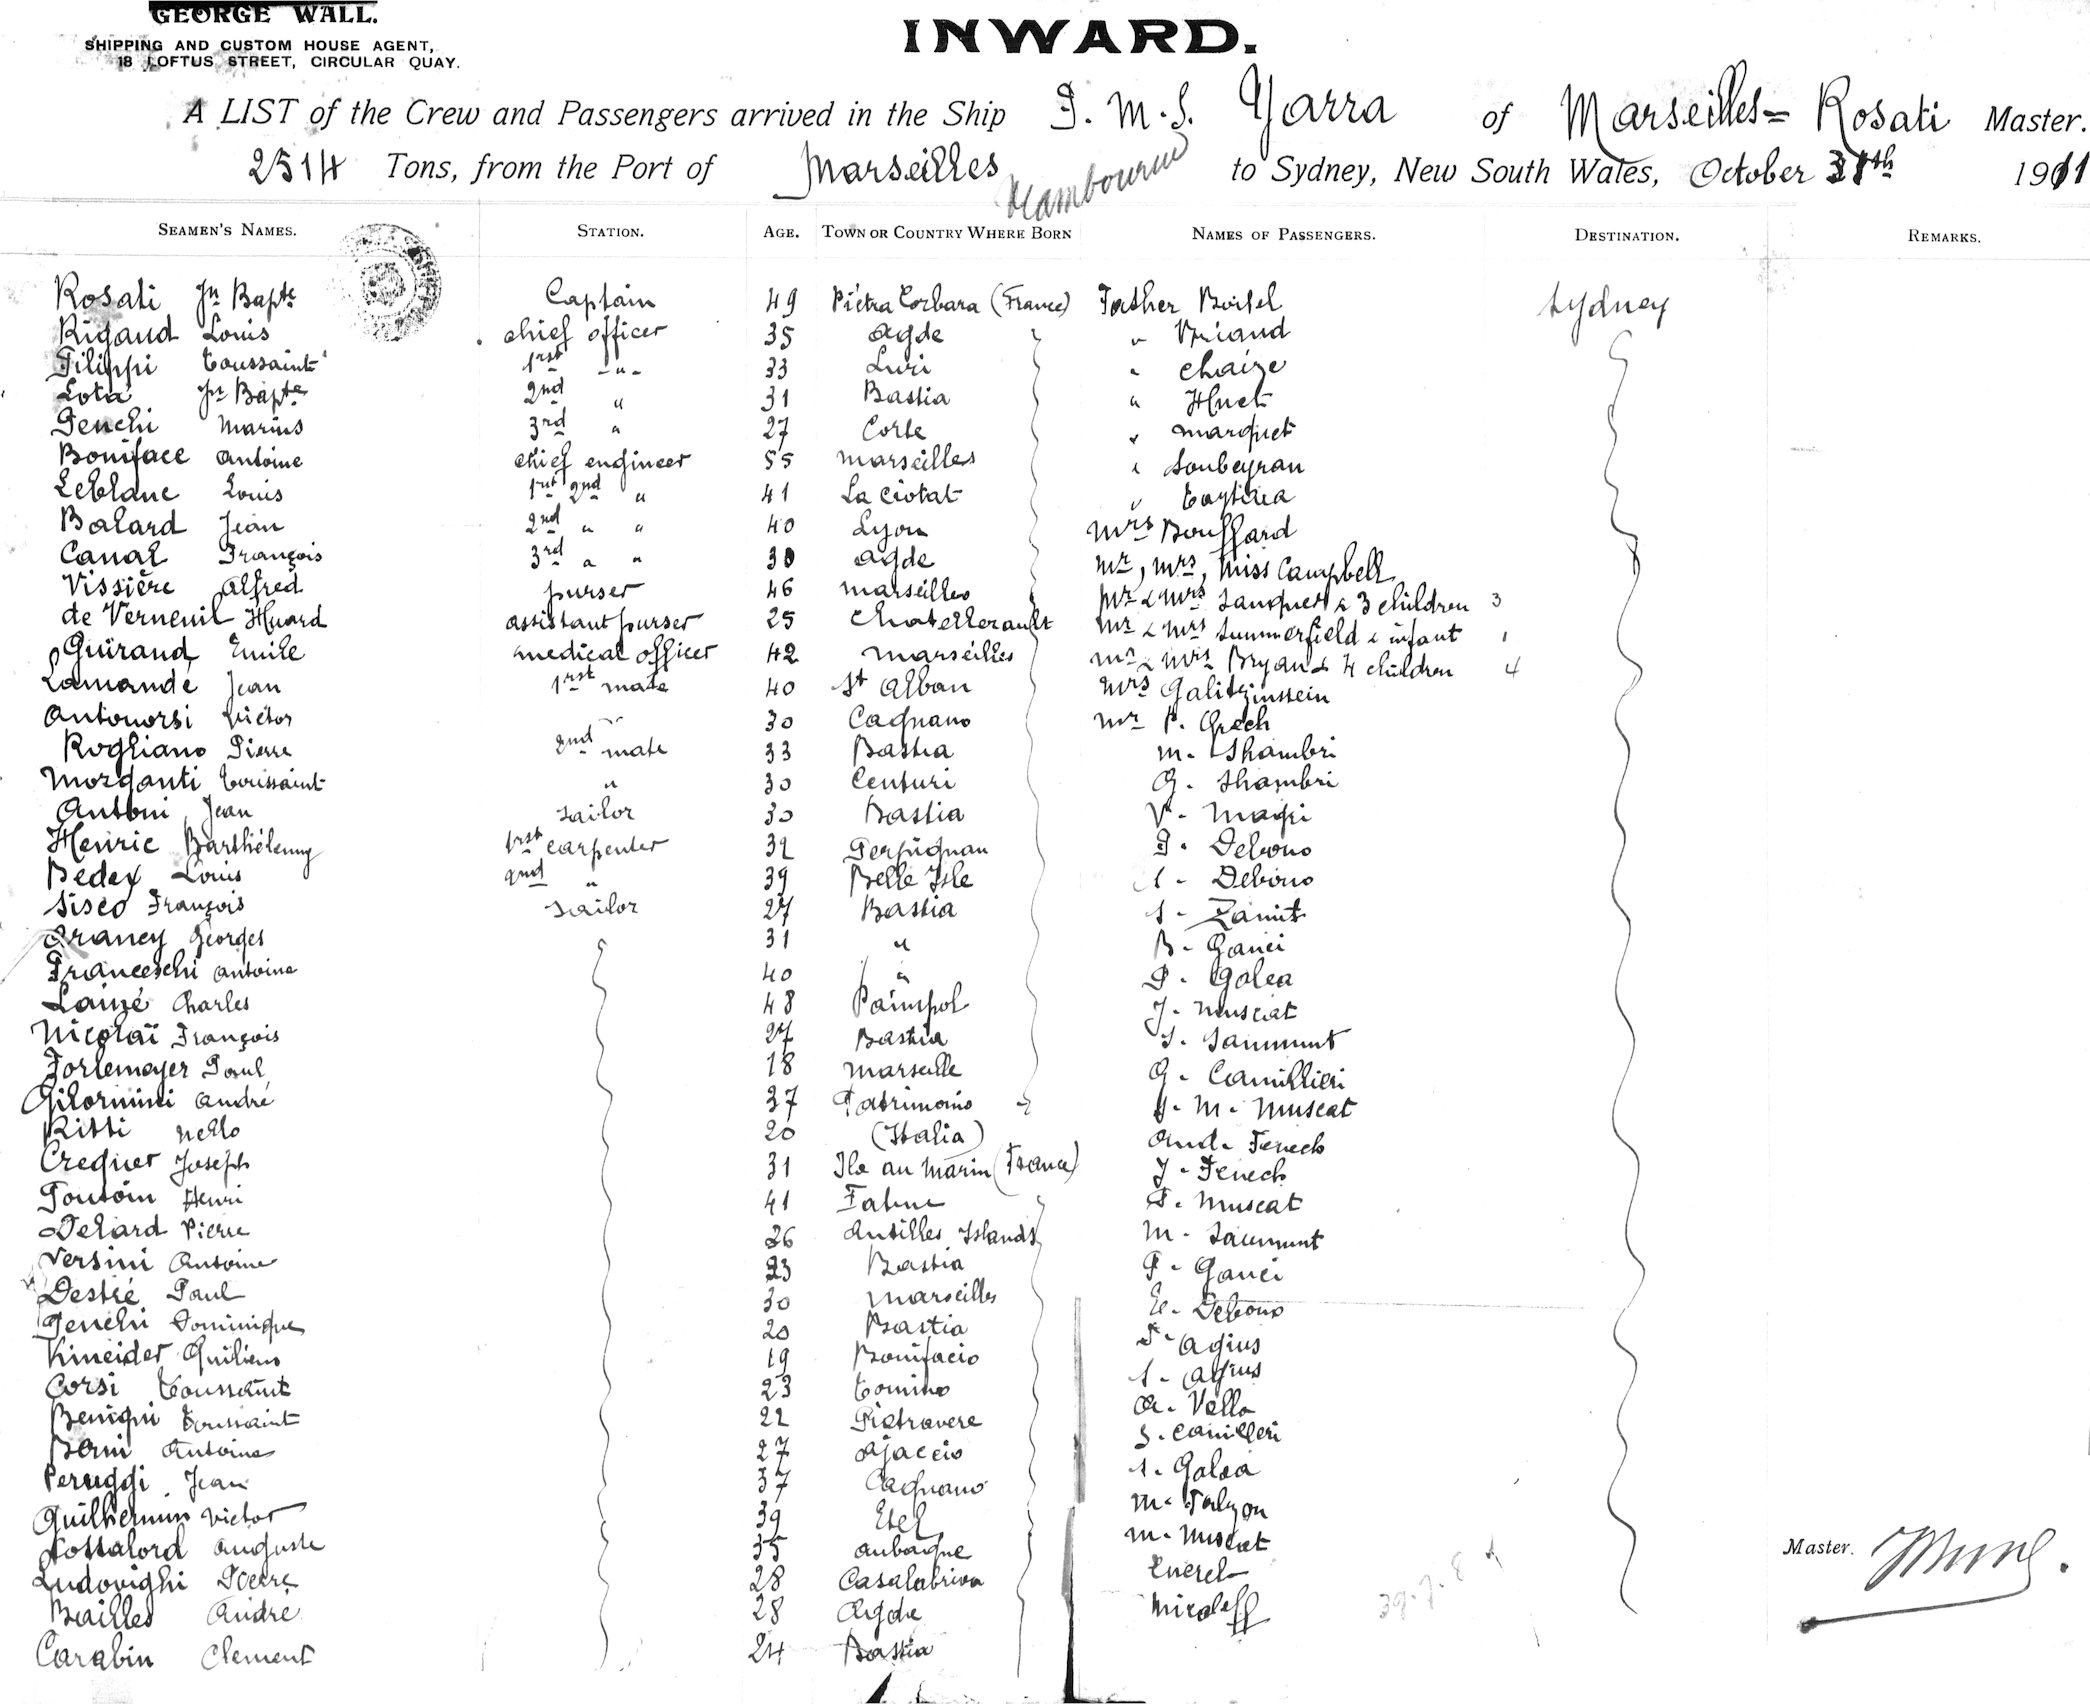 GEORGE WALL.
SHIPPING AND CUSTOM HOUSE AGENT,
18 LOFTUS STREET, CIRCULAR QUAY.
INWARD.
A LIST of the Crew and Passengers arrived in the Ship P. M. S. Yarra of Marseilles = Rosati Master.
2514 Tons, from the Port of Marseilles to Sydney, New South Wales, October 1911
SEAMEN'S NAMES. STATION. AGE. TOWN OR COUNTRY WHERE BORN NAMES OF PASSENGERS. DESTINATION. REMARKS.
Rosati Jn Bapte Captain 49 Pietra Corbara (France) Father Sydney
Rigaud Louis chief officer 35 Agde "
Filippi Toussaint 1rst -"- 33 Luri " Chaize
Lota Jn Bapte 2nd " 31 Bastia " Huet
Penchi Marius 3rd " 27 Corte " Marquet
Boniface Antoine chief engineer 55 Marseilles " Soubeyran
Leblanc Louis 1rst 2nd " 41 La Ciotat "
Balard Jean 2nd " " 40 Lyon Mrs Bouffard
Canal François 3rd " " 30 Agde Mr, Mrs, Miss Campbell
Vissière Alfred purser 46 Marseilles Mr & Mrs & 3 children 3
de Verneuil Huard assistant purser 25 Chatellerault Mr & Mrs Summerfield & infant 1
Guirand Emile medical officer 42 Marseilles Mr & Mrs Bryan & 4 children 4
Lamandé Jean 1rst mate 40 St Alban Mrs Galitzinssein
Antonorsi Victor " 30 Cagnano Mr P. Grech
Rogliano Pierre 2nd mate 33 Bastia M. Shambri
Morganti Toussaint " 30 Centuri G. Shambri
Antoni Jean sailor 30 Bastia V. Magri
Henric Barthélemy 1rst carpenter 32 Perpignan P. Debono
Bedex Louis 2nd " 39 Belle Isle S. Debono
Sisco François sailor 27 Bastia S. Zamit
Craney Georges 31 " B. Ganci
Franceschi Antoine 40 " P. Galea
Lainé Charles 48 Paimpol J. Muscat
Nicolaï François 27 Bastia S. Sammut
Forlemayer Paul 18 Marseille G. Camillieri
Gilormini André 37 Patrimonio S. M. Muscat
Ritti Nello 20 (Italia) And. Fenech
Crequer Joseph 31 Ile au Marin (France) J. Fenech
Pontoin Henri 41 P. Muscat
Delard Pierre 26 Antilles Islands M. Sammut
Versini Antoine 23 Bastia P. Ganci
Destré Paul 30 Marseilles E. Debono
Penchi Dominique 20 Bastia P. Agius
Kineider Quilien 19 Bonifacio S. Agius
Corsi Toussaint 23 Tomino A. Vella
Benigni Toussaint 22 Pietravere S. Camilleri
Berni Antoine 27 Ajaccio S. Galea
Peruggi Jean 37 Cagnano M. Falzon
Guilhermin Victor 39 Etel M. Muscat
Auguste 35 Aubagne
Ludovighi Pierre 28 Casalabriva Micaleff
Bailles André 28 Agde
Carabin Clement 24 Bastia
Master.